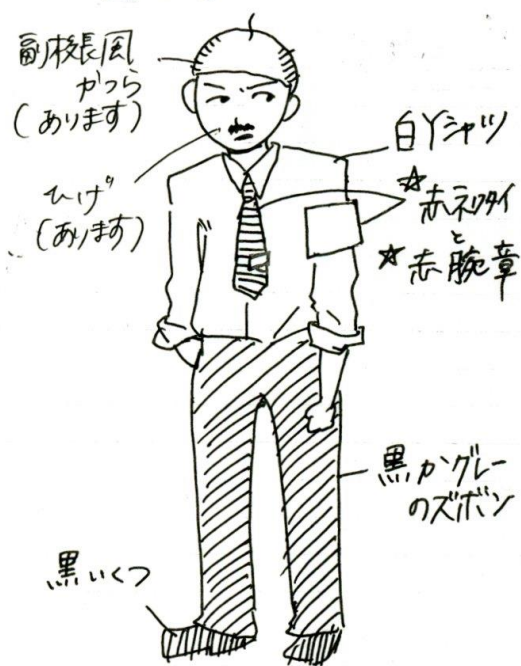 副校長風
かつら
(あります)
ひげ
(あります)
白Yシャツ
☆赤ネクタイ
と
☆赤腕章
黒かグレー
のズボン
黒いくつ